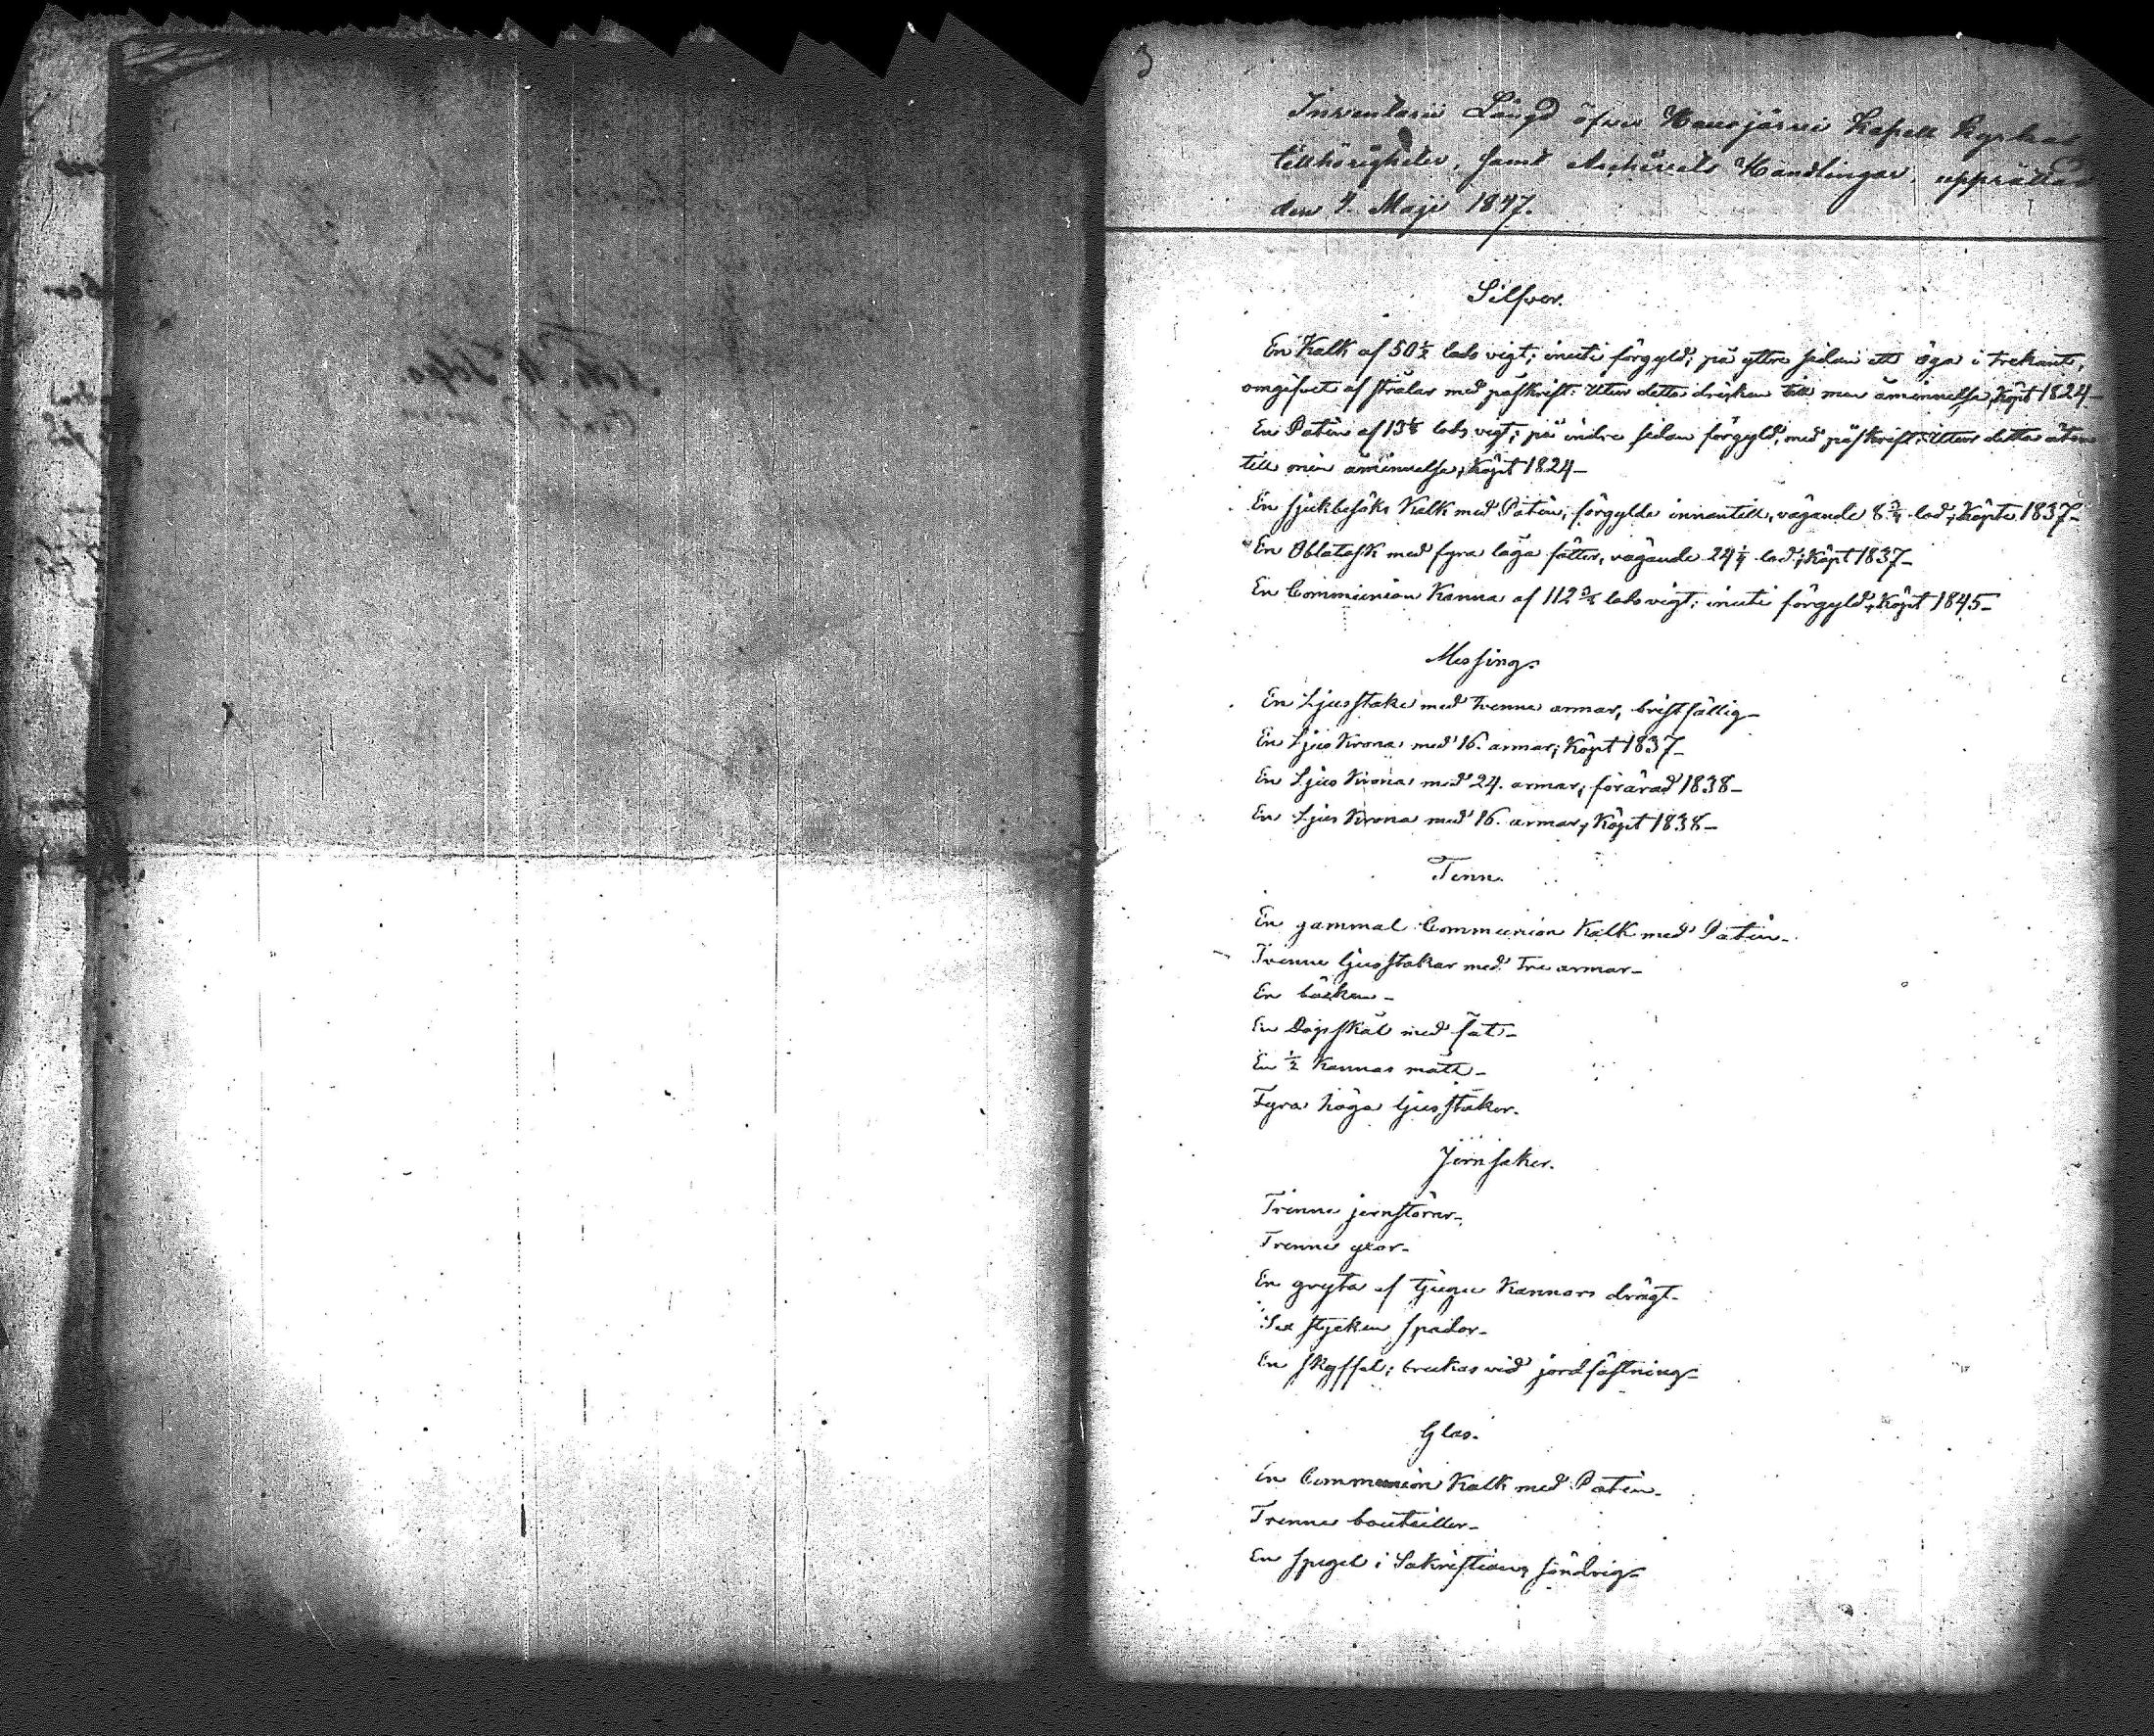 3
Inventarii Längd öfver Hausjärvi Kapell Kyrkas
tillhörigheter, samt Archivets Handlingar, upprättad
den 9. Maji 1847.
Silfver.
En Kalk af 50 1/2 lods vigt; inuti förgyld; på yttre sidan ett öga i trekant,
omgifvet af strålar med påskrift: Utur detta dricken till min åminnelse, Köpt 1824–
En Patén af 13 lods vigt; på indre sidan förgyld, med påskrift: Utur detta äten
till min åminnelse; Köpt 1824–
En sjukbesöks Kalk med Patén, förgylda innantill, vägande 8 3/4 lod; Köpte 1837–
En Oblatask med fyra låga fötter, vägande 24 1/4 lod; Köpt 1837–
En Communion Kanna af 112 lods vigt; inuti förgyld; Köpt 1845–
Messing.
En Ljusstake med tvenne armar, bristfällig–
En Ljus Krona med 16. armar; Köpt 1837–
En Ljus Krona med 24. armar; förärad 1838–
En Ljus Krona med 16. armar; Köpt 1838–
Tenn.
En gammal Communion Kalk med Patén–
Tvenne ljusstakar med tre armar–
En bäcken–
En Dopskål med fat–
En 1/2 Kannas mått–
Fyra höga ljusstakar.
Jernsaker.
Trenne jernstörar–
Trenne
En gryta af tjugu Kannors drägt–
Sex stycken spador–
En skyffel; brukas vid jordfästning–
Glas.
En Communion Kalk med Patén–
Trenne bouteiller–
En spegel i Sakristian, söndrig–